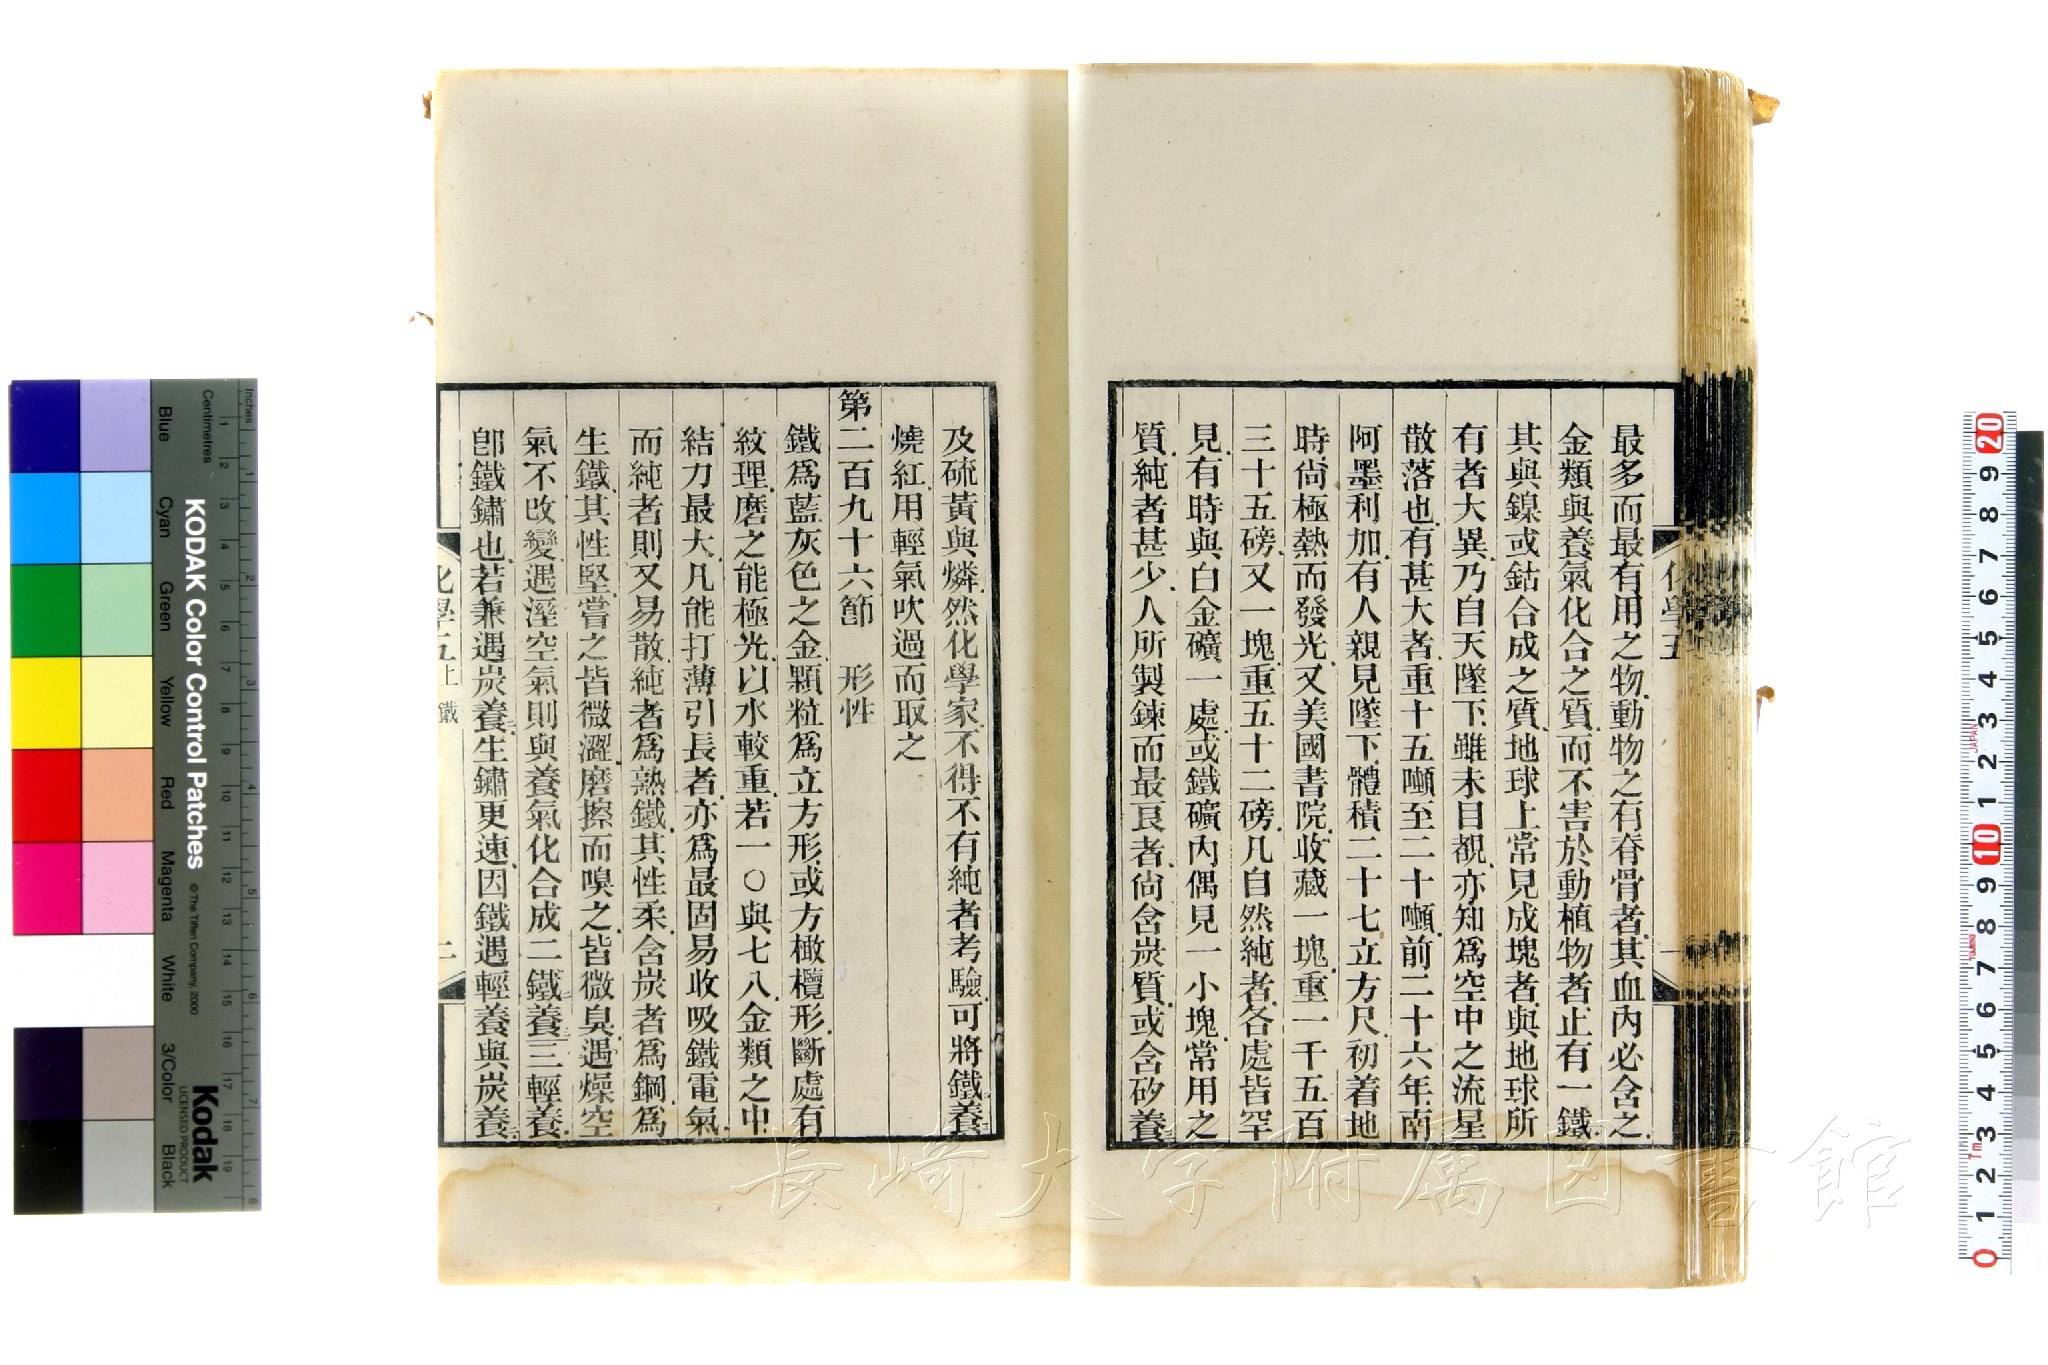 最多而最有用之物動物之有脊骨者其血內必含之
金類與養氣化合之質而不害於動植物者止有一鐵
其與鎳或鈷合成之質地球上常見成塊者與地球所
有者大異乃自天墜下雖未目覩亦知爲空中之流星
散落也有甚大者重十五噸至二十噸前二十六年南
阿墨利加有人親見墜下體積二十七立方尺初着地
時尙極熱而發光又美國書院收藏一塊重一千五百
三十五磅又一塊重五十二磅凡自然純者各處皆罕
見有時與白金礦一處或鐵礦內偶見一小塊常用之
質純者甚少人所製鍊而最良者尙含炭質或含矽養
及硫黃與燐然化學家不得不有純者考驗可將鐵養
燒紅用輕氣吹過而取之
第二百九十六節 形性
鐵爲藍灰色之金顆粒爲立方形或方橄欖形斷處有
紋理磨之能極光以水較重若一〇與七八金類之中
結力最大凡能打薄引長者亦爲最固易收吸鐵電氣
而純者則又易散純者爲熟鐵其性柔含炭者爲鋼爲
生鐵其性堅嘗之皆微澀磨擦而嗅之皆微臭遇燥空
氣不改變遇溼空氣則與養氣化合成二鐵養三輕養
卽鐵鏽也若兼遇炭養生鏽更速因鐵遇輕養與炭養
化學五上 鐵 二
化學五
長崎大学附属図書館
KODAK Color Control Patches
© The Tiffen Company, 2000
Kodak
LICENSED PRODUCT
Inches
Centimetres
Blue
Cyan
Green
Yellow
Red
Magenta
White
3/Color
Black
JAPAN